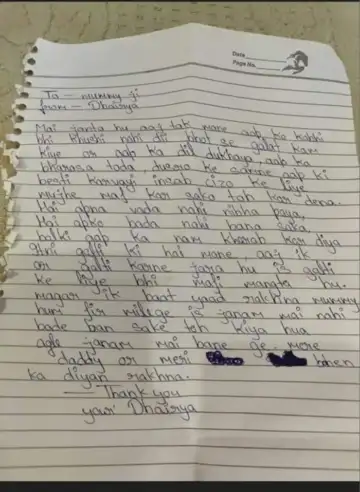 Date
Page No.
To - mummy ji
from - Dhairya
Mai janta hu aaj tak mane aap ko kabhi
bhi khushi nahi di bhot se galat kam
kiye or aap ka dil dukhaya, aap ko
bharosa toda, dusro ke samne aap ki
besti karvayi insab cizo ke liye
mujhe maf kar sako toh kar dena.
Mai apna vada nahi nibha paya,
Mai apko bada nahi bana saka,
balki aap ka nam kharab kar diya
Ani galti ki hai mane, aaj ik
or galti karne jara hu is galti
ke liye bhi mafi mangta hu.
magar ik baat yaad rakhna mummy
hum fir milege is janam mai nahi
bade ban sake toh kiya hua
agle janam mai bane ge. more
daddy or meri bhen
ka diyan rakhna.
Thank you
your Dhairya